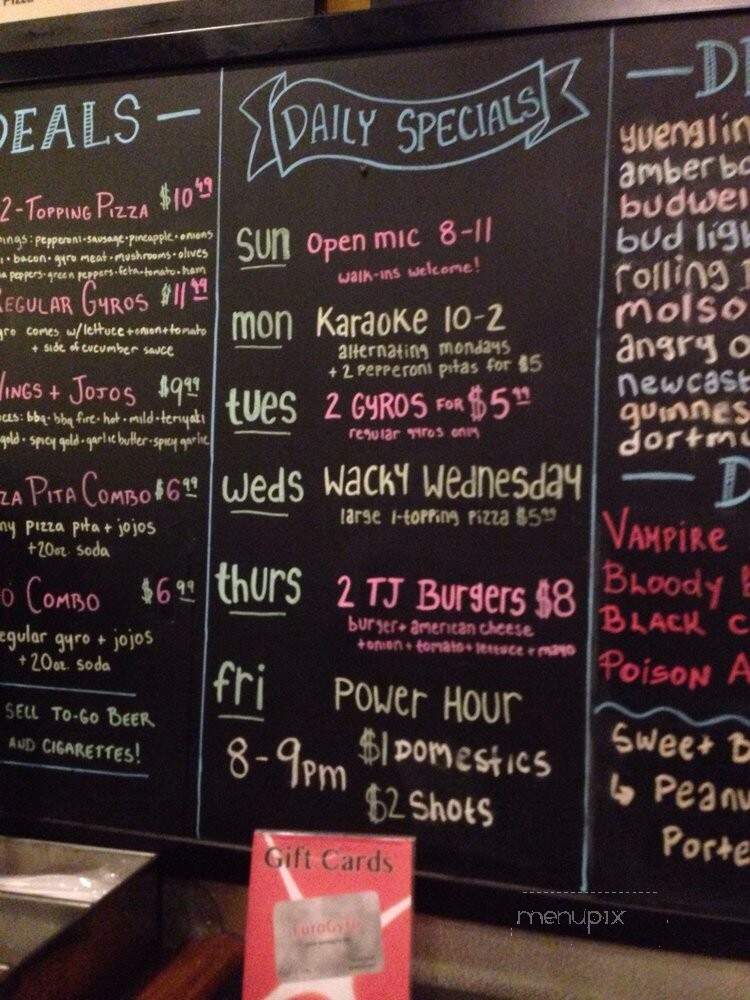 DEALS
2-TOPPING PIZZA $10.49
pepperoni·sausage·pineapple·onions
bacon·gyro meat·mushrooms·olives
peppers·green peppers·feta·tomato·ham
REGULAR GYROS $11.49
gyro comes w/lettuce+onion+tomato
+ side of cucumber sauce
WINGS + JOJOS $9.99
bbq·bbq fire·hot·mild·teriyaki
gold·spicy gold·garlic butler·spicy garlic
PITA COMBO $6.99
pizza pita + jojos
+20oz. soda
COMBO $6.99
regular gyro + jojos
+20oz. soda
SELL TO-GO BEER
AND CIGARETTES!
DAILY SPECIALS
sun open mic 8-11
walk-ins welcome!
mon Karaoke 10-2
alternating mondays
+ 2 pepperoni pitas for $5
tues 2 GYROS FOR $5.99
regular gyros only
weds Wacky Wednesday
large 1-topping pizza $5.99
thurs 2 TJ Burgers $8
burger+american cheese
+onion+tomato+lettuce+mayo
fri Power Hour
8-9pm $1 Domestics
$2 Shots
D
yuenglin
amber
budwei
bud ligh
rolling
molso
angry o
newcast
guinnes
dortm
D
VAMPIRE
BLOODY
BLACK C
POISON A
Sweet B
↳ Peanu
Porte
Gift Cards
EuroGyro
menupix